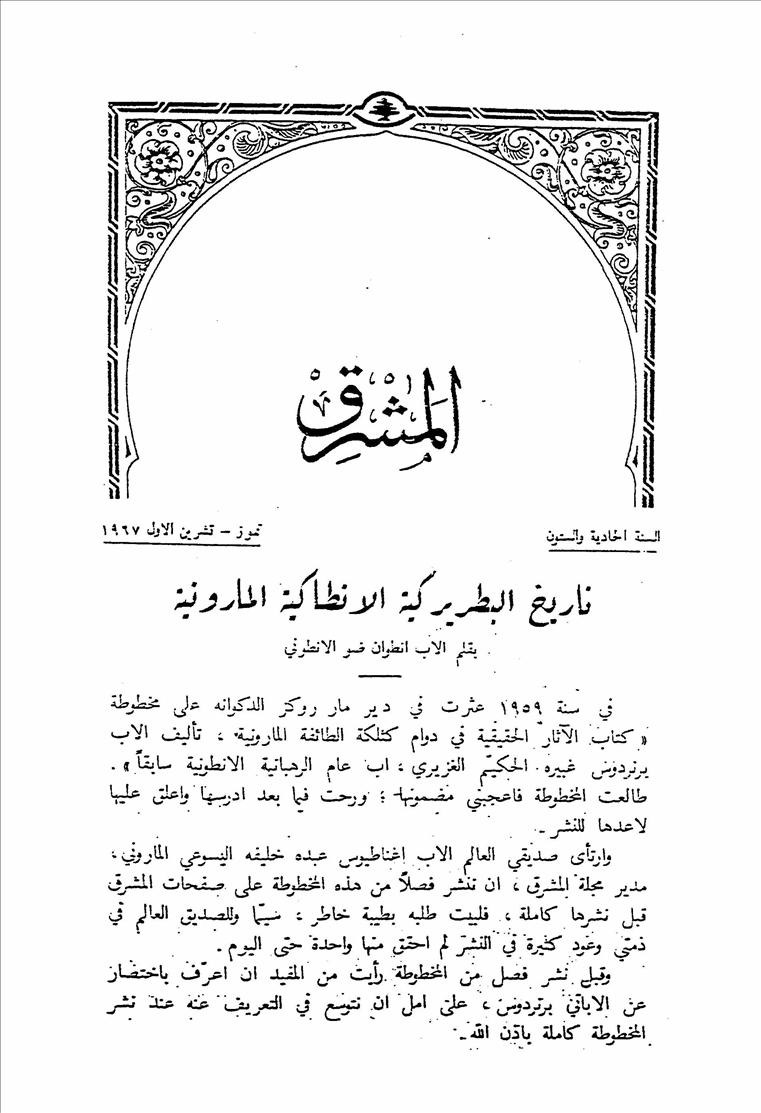 المشرق
السنة الحادية والستون
تموز – تشرين الاول ١٩٦٧
تاريخ البطريركية الانطاكية المارونية
بقلم الاب انطوان ضو الانطوني
في سنة ١٩٥٩ عثرت في دير مار روكز الدكوانه على مخطوطة
« كتاب الآثار الحقيقية في دوام كثلكة الطائفة المارونية ، تأليف الاب
برنردوس غبيره الحكيم الغزيري ، اب عام الرهبانية الانطونية سابقاً » .
طالعت المخطوطة فاعجبني مضمونها ؛ ورحت فيما بعد ادرسها واعلق عليها
لاعدها للنشر .
وارتأى صديقي العالم الاب إغناطيوس عبده خليفه اليسوعي الماروني ،
مدير مجلة المشرق ، ان ننشر فصلاً من هذه المخطوطة على صفحات المشرق
قبل نشرها كاملة ، فلبيت طلبه بطيبة خاطر ، سيّما وللصديق العالم في
ذمتي وعود كثيرة في النشر لم احقق منها واحدة حتى اليوم .
وقبل نشر فصل من المخطوطة رأيت من المفيد ان اعرّف باختصار
عن الاباتي برنردوس ، على امل ان نتوسع في التعريف عنه عند نشر
المخطوطة كاملة باذن الله .